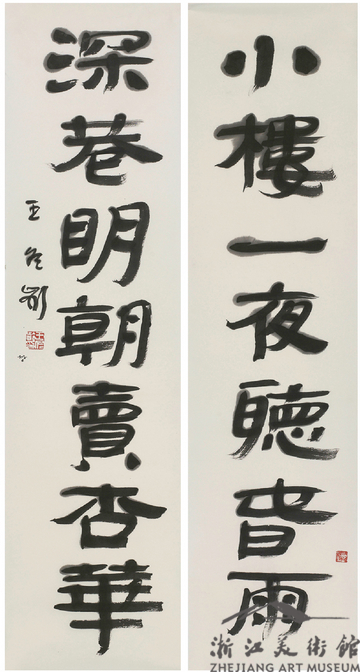 小樓一夜聽旾雨
深巷明朝賣杏華
王冬齡
浙江美術館
ZHEJIANG ART MUSEUM